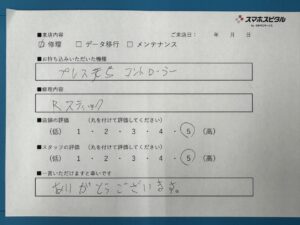 スマホスピタル
■来店内容 ご来店日： 年 月 日
☑ 修理 □ データ移行 □ メンテナンス
■お持ち込みいただいた機種
プレステ5 コントローラー
■修理内容
Rスティック
■店舗の評価 （丸を付けて評価してください）
（低） 1 ・ 2 ・ 3 ・ 4 ・ 5 （高）
■スタッフの評価 （丸を付けて評価してください）
（低） 1 ・ 2 ・ 3 ・ 4 ・ 5 （高）
■一言いただけますと幸いです
ありがとうございます。